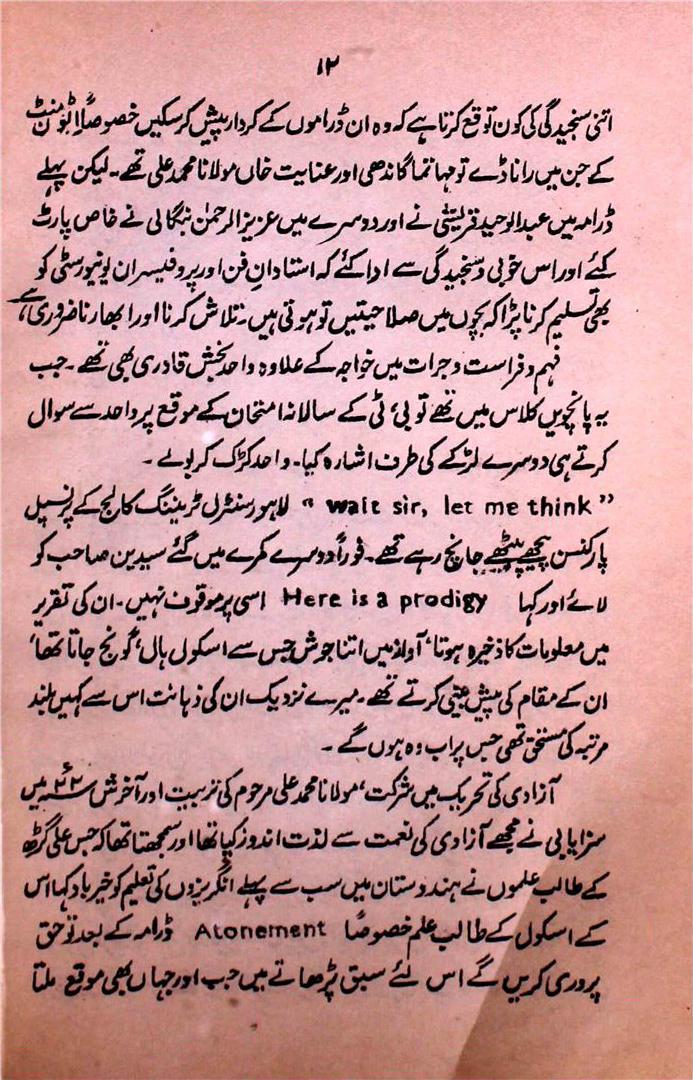 ۱۲
اتنی سنجیدگی کی کون توقع کرتا ہے کہ وہ ان ڈراموں کے کردار پیش کر سکیں خصوصاً اٹومنٹ
کے جن میں رانا ڈے تو مہاتما گاندھی اور عنایت خاں مولانا محمد علی تھے۔ لیکن پہلے
ڈرامہ میں عبد الوحید قریشی نے اور دوسرے میں عزیز الرحمٰن بنگالی نے خاص پارٹ
کئے اور اس خوبی و سنجیدگی سے ادا کئے کہ استادانِ فن اور پروفیسران یونیورسٹی کو
بھی تسلیم کرنا پڑا کہ بچوں میں صلاحیتیں تو ہوتی ہیں۔ تلاش کرنا اور ابھارنا ضروری ہے،
فہم و فراست و جرات میں خواجہ کے علاوہ واحد بخش قادری بھی تھے۔ جب
یہ پانچویں کلاس میں تھے تو بی، ٹی کے سالانہ امتحان کے موقع پر واحد سے سوال
کرتے ہی دوسرے لڑکے کی طرف اشارہ کیا۔ واحد کڑک کر بولے۔
"wait sir, let me think" لاہور سنٹرل ٹریننگ کالج کے پرنسپل
پارکنسن پیچھے بیٹھے جانچ رہے تھے۔ فوراً دوسرے کمرے میں گئے سیدین صاحب کو
لائے اور کہا Here is a prodigy اسی پر موقوف نہیں۔ ان کی تقریر
میں معلومات کا ذخیرہ ہوتا، آواز میں اتنا جوش جس سے اسکول ہال، گونج جاتا تھا،
ان کے مقام کی پیش بینی کرتے تھے۔ میرے نزدیک ان کی ذہانت اس سے کہیں بلند
مرتبہ کی مستحق تھی جس پر اب وہ ہوں گے۔
آزادی کی تحریک میں شرکت، مولانا محمد علی مرحوم کی تربیت اور آخرش ۲۲ء میں
سزایابی نے مجھے آزادی کی نعمت سے لذت اندوز کیا تھا اور سمجھتا تھا کہ جس علی گڑھ
کے طالب علموں نے ہندوستان میں سب سے پہلے انگریزوں کی تعلیم کو خیر باد کہا اس
کے اسکول کے طالب علم خصوصاً Atonement ڈرامہ کے بعد تو حق
پروری کریں گے اس لئے سبق پڑھاتے میں جب اور جہاں بھی موقع ملتا